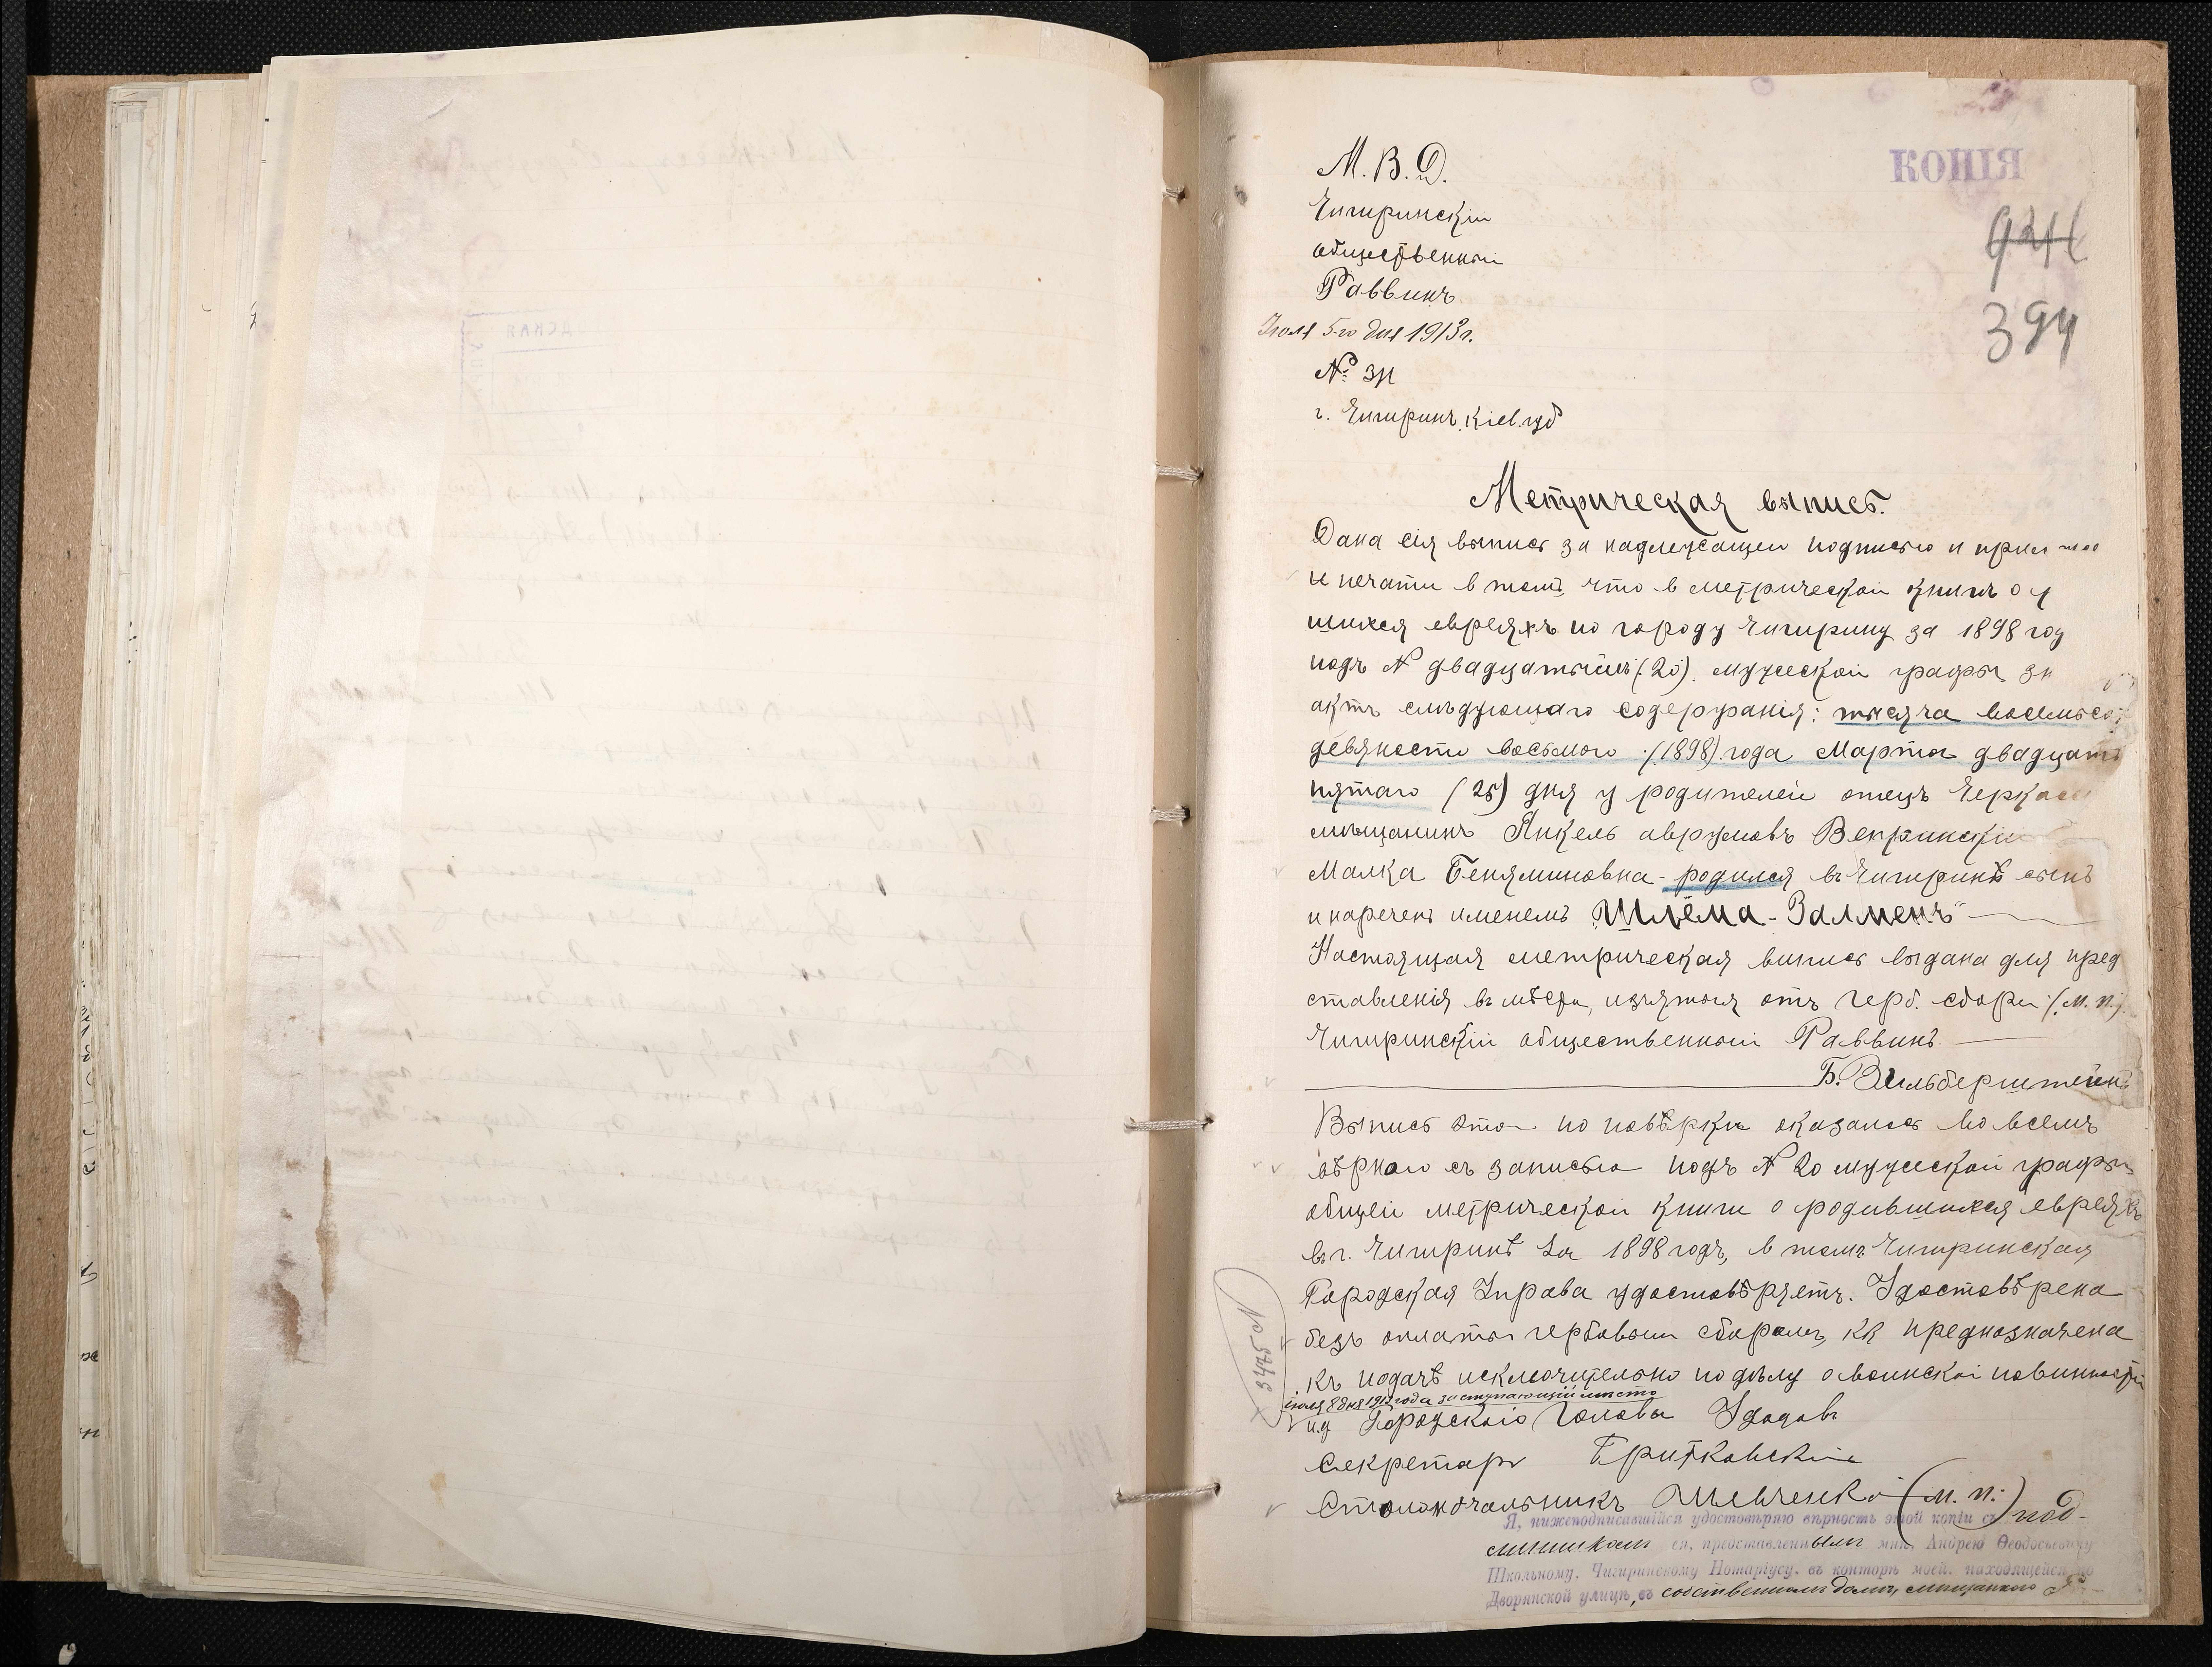 КОПІЯ
М. В. Д.
Чигиринскій
общественный
Раввинъ
924
394
Іюля 5-го дня 1913 г.
№ 311
г. Чигиринъ, Кіев. губ
Метрическая выпись.
Дана сія выпись за надлежащею подписью и прил
и печати в томъ, что в метрической книгѣ о
шихся евреяхъ по городу Чигирину за 1898 год
подъ № двадцатымъ (20) мужеской графы зн
актъ слѣдующаго содержанія: тысяча восемьсот
девяности восьмого (1898) года Марта двадцать
пятаго (25) дня у родителей отецъ Черкас
мѣщанинъ Янкель аврумовъ Вепринскій
Малка Беняминовна - родился въ Чигиринѣ сынъ
и нареченъ именемъ „Шлёма-Залменъ"
Настоящая метрическая випись выдана для пред
ставленія въ изъятыя отъ герб. сбора (м. п.)
Чигиринскій общественный Раввинъ
Б. Зильберштейнъ
Выпись эта по повѣрки оказалось во всемъ
вѣрною съ записью подъ № 20 мужеской графы
общей метрической книги о родившихся евреяхъ
въ г. Чигиринѣ за 1898 годъ, в томъ Чигиринская
Городская Управа удостовѣряетъ. Удостовѣрена
безъ оплаты гербовым сборомъ, кк предназначена
къ подачѣ исключительно по дѣлу о воинскої повинности
іюля 8 дня 1913 года заступающій мѣсто
и.д Городского Головы Удодовъ
№ 3425
Секретарь Бритковскій
Столоначальникъ Шевченко (м. п.)
Я, нижеподписавшійся удостовѣряю вѣрность этой копіи съ под-
линникомъ ея, представленнымъ мнѣ, Андрею Ѳеодосьевичу
Школьному, Чигиринскому Нотаріусу, въ конторѣ моей, находящейся по
Дворянской улицѣ, въ собственномъ домѣ, мѣщанкою